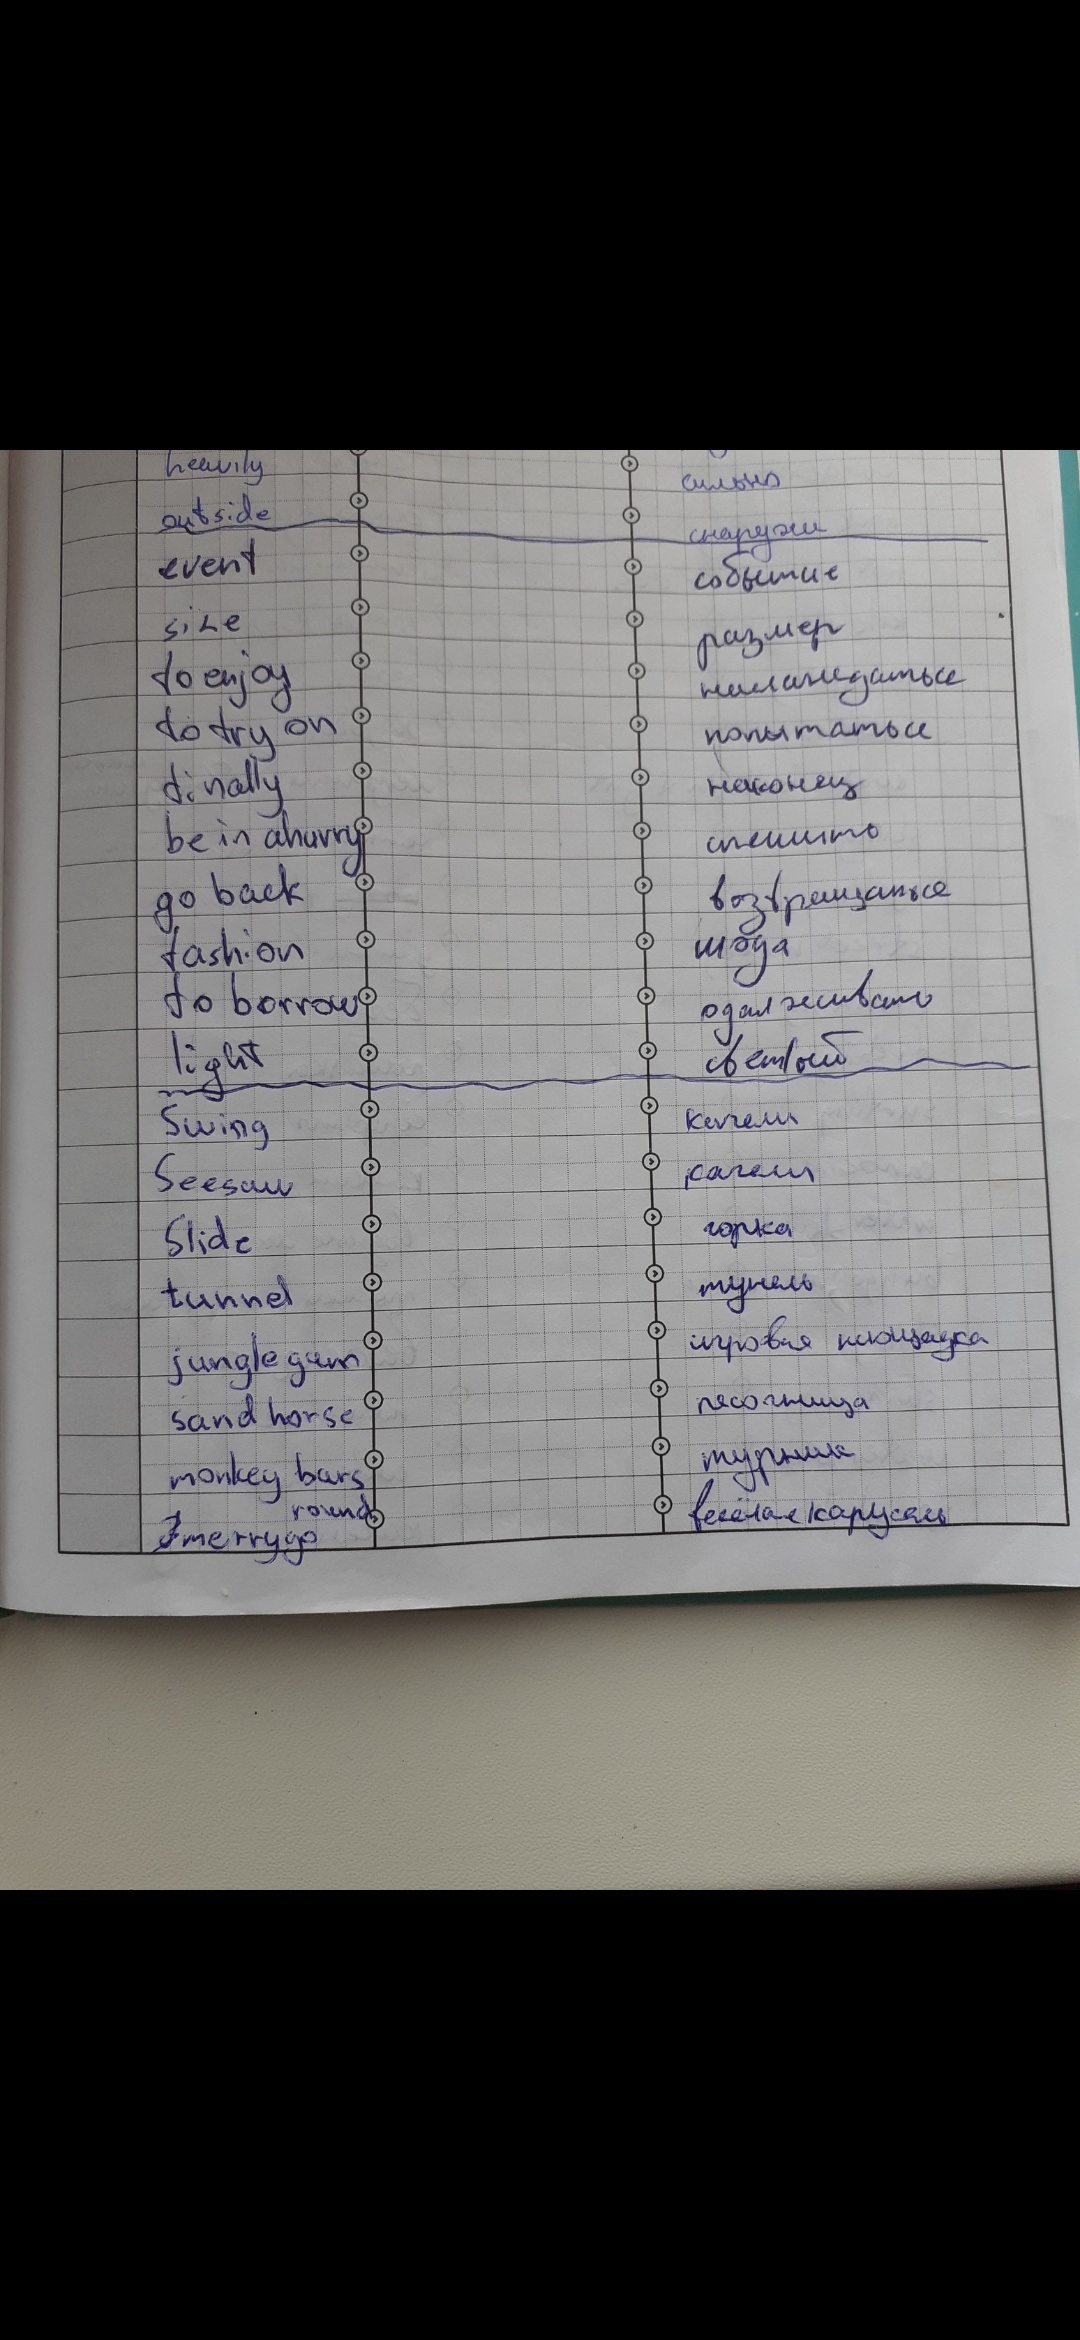 heavily сильно
outside снаружи
event событие
size размер
to enjoy наслаждаться
to try on попытаться
finally наконец
be in a hurry спешить
go back возвращаться
fashion мода
to borrow одалживать
light светлый
Swing качели
Seesaw качели
Slide горка
tunnel тунель
jungle gam игровая площадка
sand horse песочница
monkey bars турник
round
merry go весёлая карусель